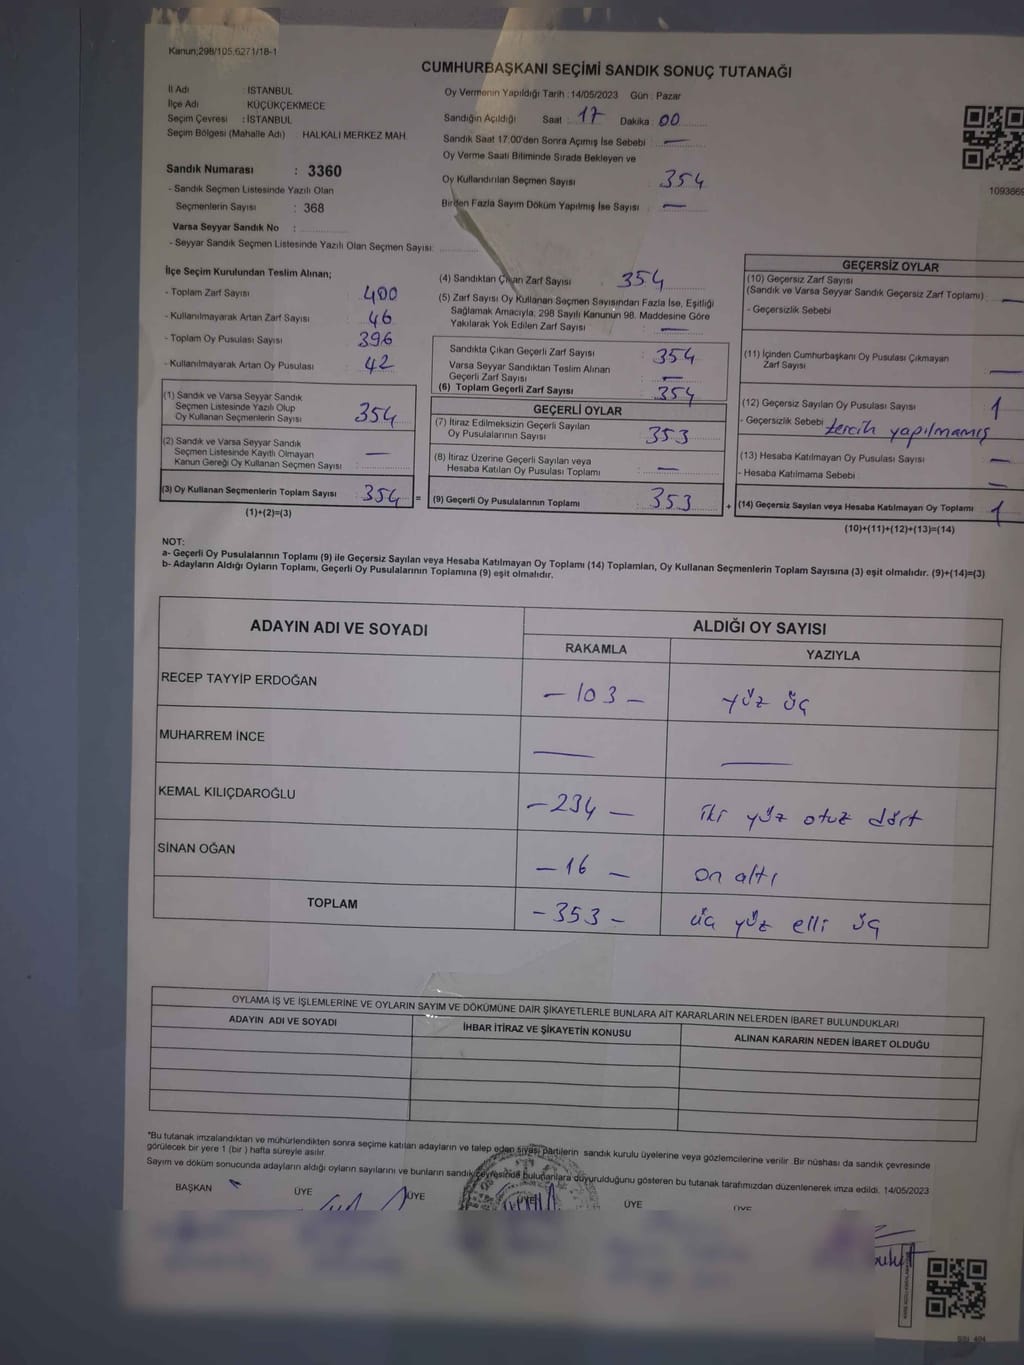 Kanun;298/105,6271/18-1
CUMHURBAŞKANI SEÇİMİ SANDIK SONUÇ TUTANAĞI
İl Adı : İSTANBUL
İlçe Adı : KÜÇÜKÇEKMECE
Seçim Çevresi : İSTANBUL
Seçim Bölgesi (Mahalle Adı) : HALKALI MERKEZ MAH.
Sandık Numarası : 3360
- Sandık Seçmen Listesinde Yazılı Olan
Seçmenlerin Sayısı : 368
Varsa Seyyar Sandık No :
- Seyyar Sandık Seçmen Listesinde Yazılı Olan Seçmen Sayısı:
Oy Vermenin Yapıldığı Tarih : 14/05/2023 Gün : Pazar
Sandığın Açıldığı Saat : 17 Dakika : 00
Sandık Saat 17:00'den Sonra Açımış İse Sebebi : —
Oy Verme Saati Bitiminde Sırada Bekleyen ve
Oy Kullandırılan Seçmen Sayısı : 354
Birden Fazla Sayım Döküm Yapılmış İse Sayısı : —
1093869
İlçe Seçim Kurulundan Teslim Alınan;
- Toplam Zarf Sayısı : 400
- Kullanılmayarak Artan Zarf Sayısı : 46
- Toplam Oy Pusulası Sayısı : 396
- Kullanılmayarak Artan Oy Pusulası : 42
(1) Sandık ve Varsa Seyyar Sandık
Seçmen Listesinde Yazılı Olup
Oy Kullanan Seçmenlerin Sayısı : 354
(2) Sandık ve Varsa Seyyar Sandık
Seçmen Listesinde Kayıtlı Olmayan
Kanun Gereği Oy Kullanan Seçmen Sayısı : —
(3) Oy Kullanan Seçmenlerin Toplam Sayısı : 354 =
(1)+(2)=(3)
(4) Sandıktan Çıkan Zarf Sayısı : 354
(5) Zarf Sayısı Oy Kullanan Seçmen Sayısından Fazla İse, Eşitliği
Sağlamak Amacıyla; 298 Sayılı Kanunun 98. Maddesine Göre
Yakılarak Yok Edilen Zarf Sayısı : —
Sandıkta Çıkan Geçerli Zarf Sayısı : 354
Varsa Seyyar Sandıktan Teslim Alınan
Geçerli Zarf Sayısı : —
(6) Toplam Geçerli Zarf Sayısı : 354
GEÇERLİ OYLAR
(7) İtiraz Edilmeksizin Geçerli Sayılan
Oy Pusulalarının Sayısı : 353
(8) İtiraz Üzerine Geçerli Sayılan veya
Hesaba Katılan Oy Pusulası Toplamı : —
(9) Geçerli Oy Pusulalarının Toplamı : 353 +
GEÇERSİZ OYLAR
(10) Geçersiz Zarf Sayısı
(Sandık ve Varsa Seyyar Sandık Geçersiz Zarf Toplamı) : —
- Geçersizlik Sebebi
(11) İçinden Cumhurbaşkanı Oy Pusulası Çıkmayan
Zarf Sayısı : —
(12) Geçersiz Sayılan Oy Pusulası Sayısı : 1
- Geçersizlik Sebebi tercih yapılmamış
(13) Hesaba Katılmayan Oy Pusulası Sayısı : —
- Hesaba Katılmama Sebebi : —
(14) Geçersiz Sayılan veya Hesaba Katılmayan Oy Toplamı : 1
(10)+(11)+(12)+(13)=(14)
NOT:
a- Geçerli Oy Pusulalarının Toplamı (9) ile Geçersiz Sayılan veya Hesaba Katılmayan Oy Toplamı (14) Toplamları, Oy Kullanan Seçmenlerin Toplam Sayısına (3) eşit olmalıdır. (9)+(14)=(3)
b- Adayların Aldığı Oyların Toplamı, Geçerli Oy Pusulalarının Toplamına (9) eşit olmalıdır.
ADAYIN ADI VE SOYADI ALDIĞI OY SAYISI
RAKAMLA YAZIYLA
RECEP TAYYİP ERDOĞAN - 103 - yüz üç
MUHARREM İNCE — —
KEMAL KILIÇDAROĞLU - 234 - iki yüz otuz dört
SİNAN OĞAN - 16 - on altı
TOPLAM - 353 - üç yüz elli üç
OYLAMA İŞ VE İŞLEMLERİNE VE OYLARIN SAYIM VE DÖKÜMÜNE DAİR ŞİKAYETLERLE BUNLARA AİT KARARLARIN NELERDEN İBARET BULUNDUKLARI
ADAYIN ADI VE SOYADI İHBAR İTİRAZ VE ŞİKAYETİN KONUSU ALINAN KARARIN NEDEN İBARET OLDUĞU
*Bu tutanak imzalandıktan ve mühürlendikten sonra seçime katılan adayların ve talep eden siyasi partilerin sandık kurulu üyelerine veya gözlemcilerine verilir. Bir nüshası da sandık çevresinde
görülecek bir yere 1 (bir ) hafta süreyle asılır.
Sayım ve döküm sonucunda adayların aldığı oyların sayılarını ve bunların sandık çevresinde bulunanlara duyurulduğunu gösteren bu tutanak tarafımızdan düzenlenerek imza edildi. 14/05/2023
BAŞKAN ÜYE ÜYE ÜYE ÜYE ÜYE